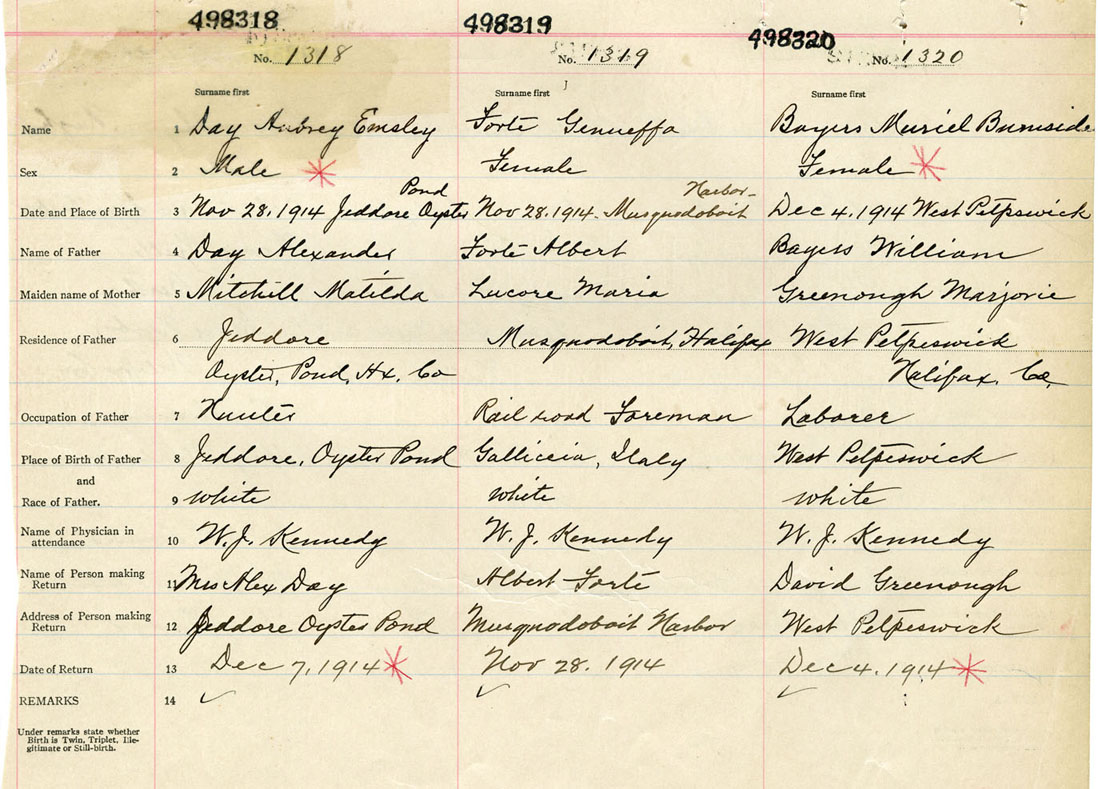 498318 498319 498320
No. 1318 No. 1319 No. 1320
Surname first Surname first Surname first
Name 1 Day Aubrey Emsley Forte Genueffa Bayers Muriel Burnside
Sex 2 Male Female Female
Pond Harbor
Date and Place of Birth 3 Nov 28. 1914 Jeddore Oyster Nov 28. 1914. Musquodoboit Dec 4. 1914 West Petpeswick
Name of Father 4 Day Alexander Forte Albert Bayers William
Maiden name of Mother 5 Mitchell Matilda Lucore Maria Greenough Marjorie
Residence of Father 6 Jeddore Musquodoboit, Halifax West Petpeswick
Oyster, Pond, Hx. Co Halifax. Co.
Occupation of Father 7 Hunter Rail road Foreman Laborer
Place of Birth of Father 8 Jeddore, Oyster Pond Galliccia, Italy West Petpeswick
and
Race of Father. 9 white white white
Name of Physician in
attendance 10 W. J. Kennedy W. J. Kennedy W. J. Kennedy
Name of Person making
Return 11 Mrs Alex Day Albert Forte David Greenough
Address of Person making
Return 12 Jeddore Oyster Pond Musquodoboit Harbor West Petpeswick
Date of Return 13 Dec 7, 1914 Nov 28. 1914 Dec 4. 1914
REMARKS 14
Under remarks state whether
Birth is Twin, Triplet, Ille-
gitimate or Still-birth.